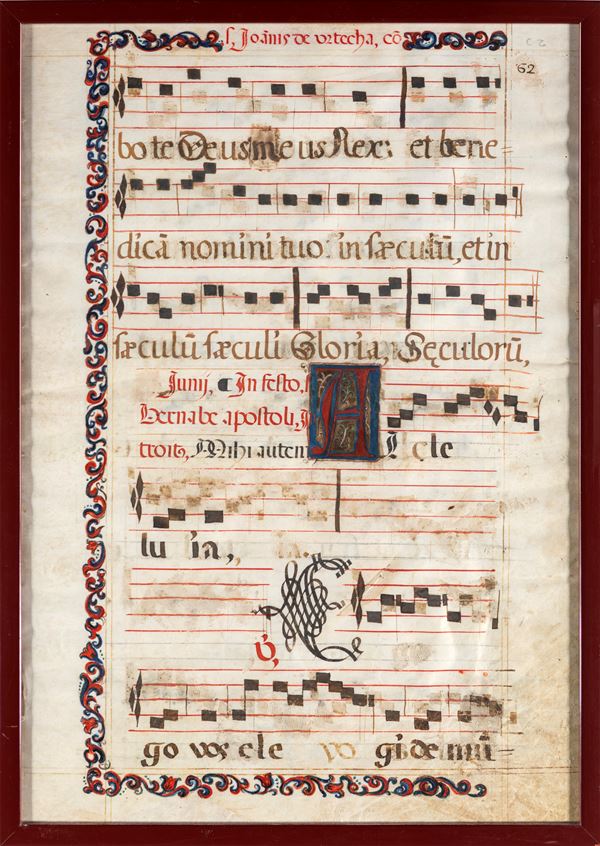 s. Joānis de vrtecha, cō
62
bo te Deus me us Rex: et bene=
dicā nomini tuo: in sæculū, et in
sæculū sæculi Gloria, Sęculorū,
Junij, In festo, s.
Bernabe apostoli, J
troito, Mihi autem
A l cle
lu ia,
℣,
E
go vos ele vo gi de mū=